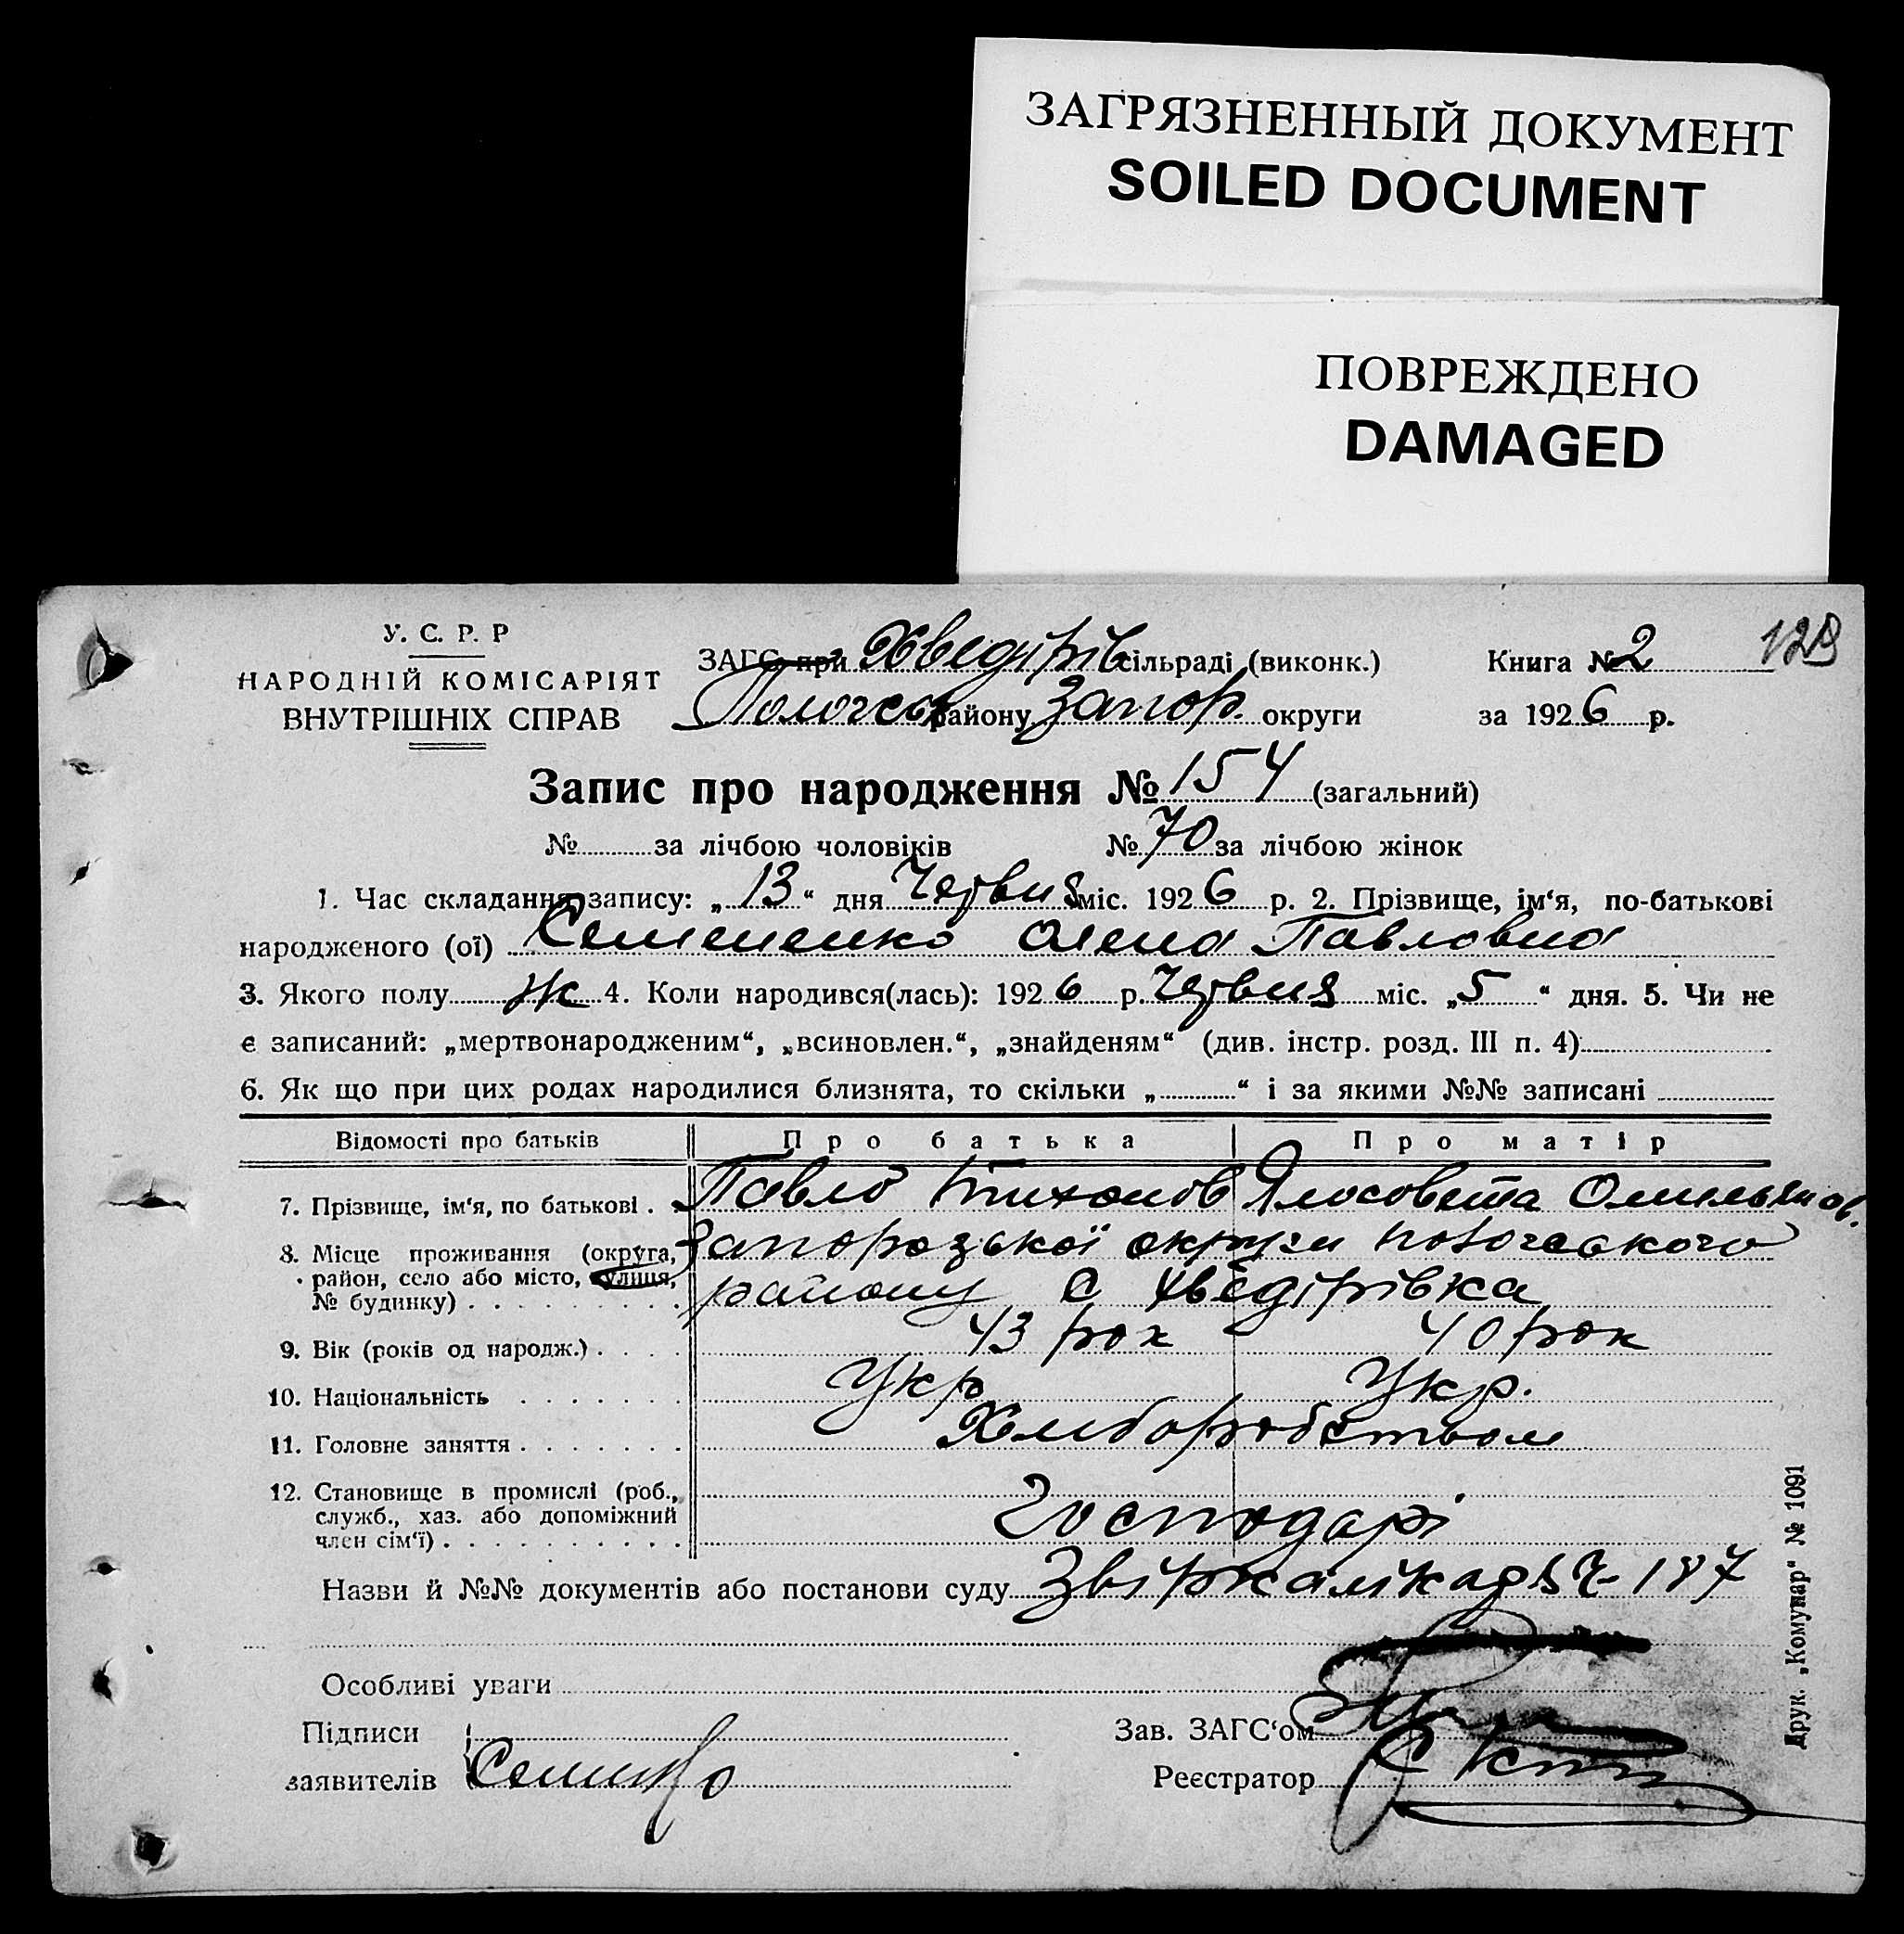 ЗАГРЯЗНЕННЫЙ ДОКУМЕНТ
SOILED DOCUMENT
ПОВРЕЖДЕНО
DAMAGED
У. С. Р. Р
НАРОДНІЙ КОМІСАРІЯТ
ВНУТРІШНІХ СПРАВ
ЗАГС при Хведірів сільраді (виконк.)
Пологськ району Запор. округи
Книга № 2
за 1926 р.
128
Запис про народження № 154 (загальний)
№ за лічбою чоловіків № 70 за лічбою жінок
1. Час складання запису: „13“ дня Червня міс. 1926 р. 2. Прізвище, ім‘я, по-батькові
народженого (ої) Семененко Олена Павловна
3. Якого полу ж 4. Коли народився(лась): 1926 р. Червня міс. „5“ дня. 5. Чи не
є записаний: „мертвонародженим“, „всиновлен.“, „знайденям“ (див. інстр. розд. III п. 4)
6. Як що при цих родах народилися близнята, то скільки „ “ і за якими №№ записані
Відомості про батьків Про батька Про матір
7. Прізвище, ім‘я, по батькові . . Павло Тихонов Ялосовета Омельянов.
8. Місце проживання (округа, Запорозської округи Пологського
район, село або місто, вулиця, району с Хведірівка
№ будинку)
9. Вік (років од народж.) . . . . 43 рок 40 рок
10. Національність . . . . . . . Укр Укр.
11. Головне заняття . . . . . . . Хлиборобством
12. Становище в промислі (роб.,
служб., хаз. або допоміжний Господарі
член сім‘ї)
Назви й №№ документів або постанови суду 187
Особливі уваги
Підписи
заявителів
Зав. ЗАГС‘ом
Реєстратор
Друк. „Комунар“ № 1091